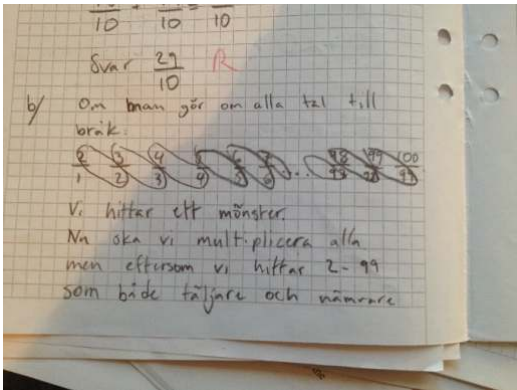 10 + 10 = 10
Svar 29/10 R
b) Om man gör om alla tal till
bråk:
2/1 3/2 4/3 5/4 6/5 7/6 ... 98/97 99/98 100/99
Vi hittar ett mönster.
Nu ska vi multiplicera alla
men eftersom vi hittar 2-99
som både täljare och nämnare